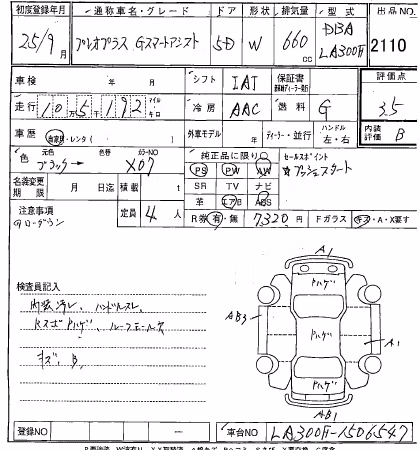 初度登録年月 通称車名・グレード ドア 形状 排気量 型式 出品NO
25/9月 プレオプラス Gスマートアシスト 5D W 660cc DBA LA300F 2110
車検 年 月 シフト IAT 保証書 評価点
走行 10万5千192 マイル キロ 冷房 AAC 燃料 G 3.5
車歴 自家用・レンタ( ) 外車モデル 年 ディーラー・並行 ハンドル 左・右 内装評価 B
色 元色 ブラック→ 色替 カラーNO X07 純正品に限り セールスポイント
PS PW AW ☆プッシュスタート
名義変更期限 月 日迄 積載 t SR TV ナビ
注意事項 定員 4人 革 エアB ABS
ローダウン R券 有・無 7,320円 Fガラス キズ・A・X要す
A1
検査員記入 Pハゲ
内装汚レ、ハンドルスレ、 AB3
Pハゲ A1
キズ、B、
Pハゲ
AB1
登録NO 車台NO LA300F-1506547